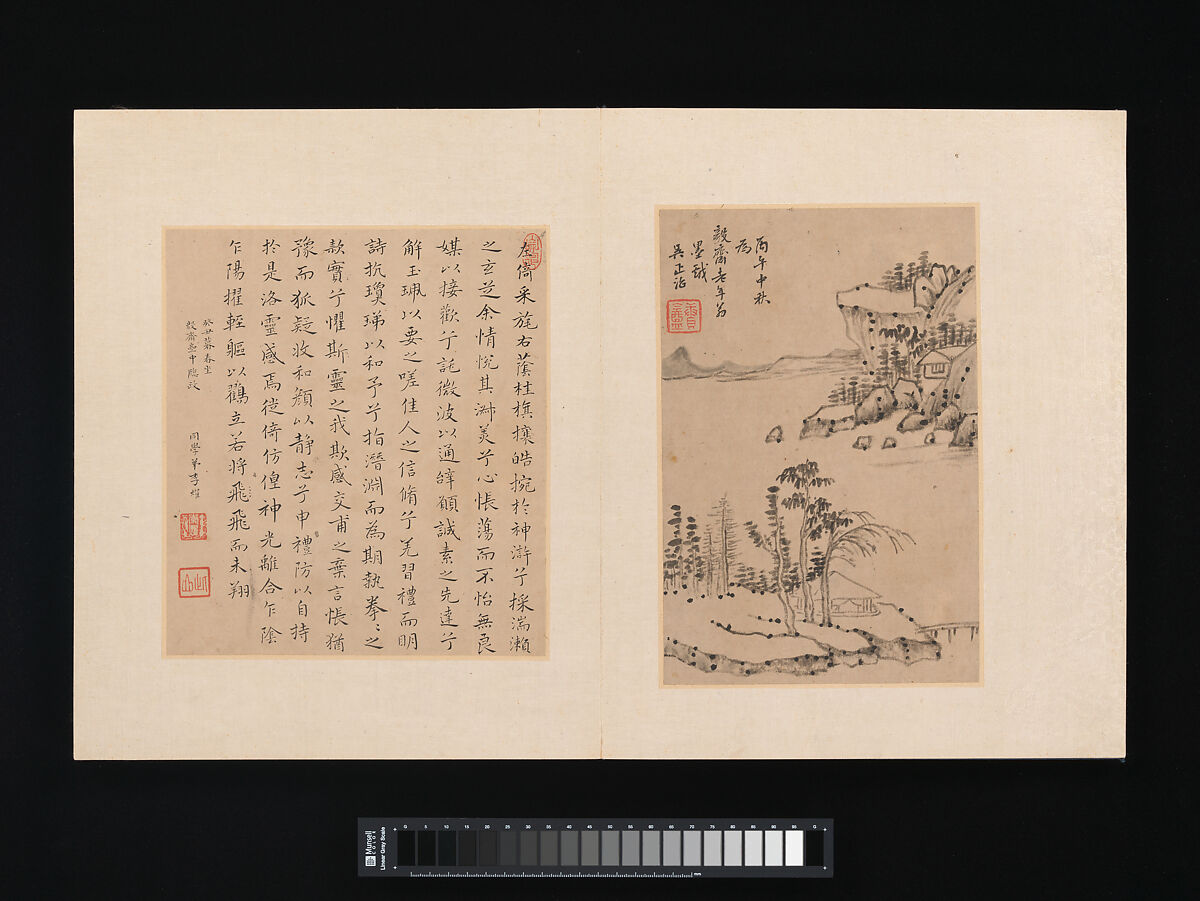 丙午中秋
為
毅齋老年翁
墨戲
吳正治
左倚采旄右蔭桂旗攘皓捥於神滸兮採湍瀨
之玄芝余情悅其淑美兮心悵蕩而不怡無良
媒以接歡兮託微波以通辭願誠素之先達兮
解玉珮以要之嗟佳人之信脩兮羌習禮而明
詩抗瓊珶以和予兮指潛淵而為期執拳〻之
款實兮懼斯靈之我欺感交甫之棄言悵猶
豫而狐疑收和顏以靜志兮申禮防以自持
於是洛靈感焉徙倚仿偟神光離合乍陰
乍陽擢輕軀以鸖立若將飛飛而未翔
癸丑暮春坐
毅齋中應政
同學弟李
Munsell COLOR
Linear Gray Scale
G 5 10 15 20 25 30 35 40 45 50 55 60 65 70 75 80 85 90 95 G
mm